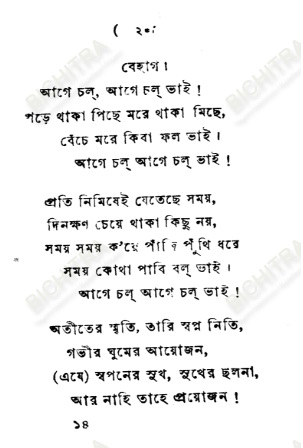 ( ২০ঃ
বেহাগ।
আগে চল্, আগে চল্ ভাই!
পড়ে থাকা পিছে মরে থাকা মিছে,
বেঁচে মরে কিবা ফল ভাই।
আগে চল্ আগে চল্ ভাই!
প্রতি নিমিষেই যেতেছে সময়,
দিনক্ষণ চেয়ে থাকা কিছু নয়,
সময় সময় ক'য়ে পাঁজি পুঁথি ধরে
সময় কোথা পাবি বল্ ভাই।
আগে চল্ আগে চল্ ভাই!
অতীতের স্মৃতি, তারি স্বপ্ন নিতি,
গভীর ঘুমের আয়োজন,
(এযে) স্বপনের সুখ, সুখের ছলনা,
আর নাহি তাহে প্রয়োজন!
১৪
BICHITRA